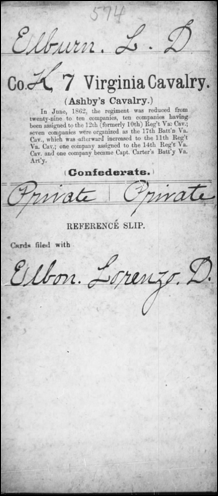 574
Eilburn. L. D
Co. K 7 Virginia Cavalry.
(Ashby's Cavalry.)
In June, 1862, the regiment was reduced from
twenty-nine to ten companies, ten companies having
been assigned to the 12th (formerly 10th) Reg't Va. Cav.;
seven companies were organized as the 17th Batt'n Va.
Cav., which was afterward increased to the 11th Reg't
Va. Cav.; one company assigned to the 14th Reg't Va.
Cav. and one company became Capt. Carter's Batt'y Va.
Art'y.
(Confederates.)
Private Private
REFERENCE SLIP.
Cards filed with
Eilbon. Lorenzo. D.